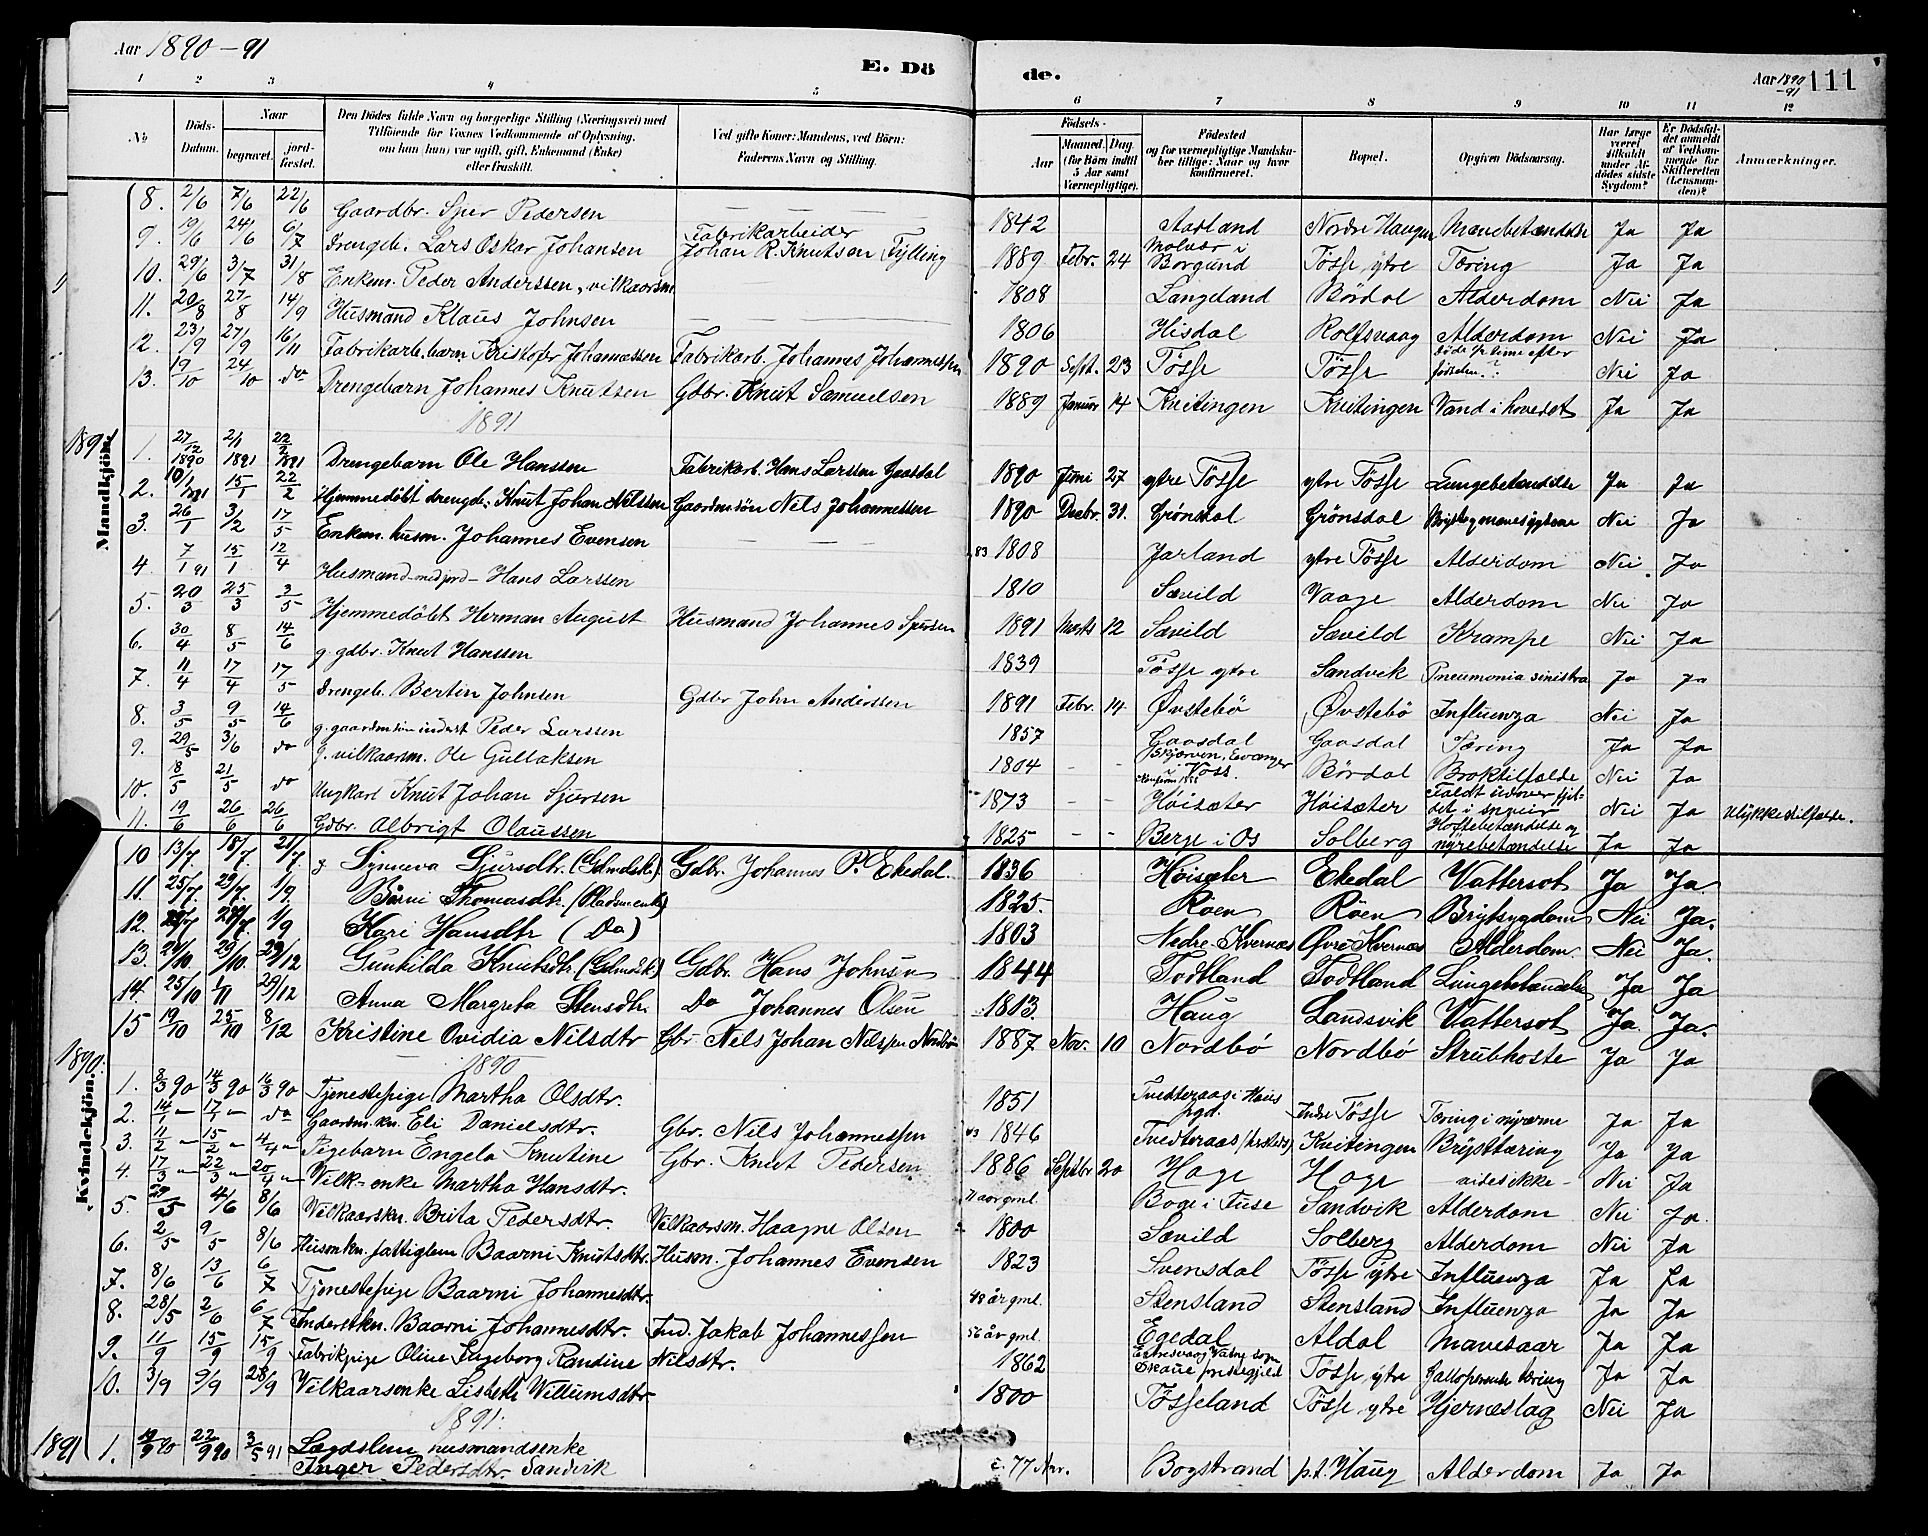 Aar 1890-91
E. Dö
de.
Aar 1890-91
111
1 2 3 4 5 6 7 8 9 10 11 12
No
Döds-Datum.
Naar begravet. jordfæstet.
Den Dödes fulde Navn og borgerlige Stilling (Næringsvei) med Tilföiende for Voxnes Vedkommende af Oplysning, om han (hun) var ugift, gift, Enkemand (Enke) eller fraskilt.
Ved gifte Koner: Mandens, ved Börn: Faderens Navn og Stilling.
Födsels- Aar Maaned. Dag. (for Börn indtil 5 Aar samt Værnepligtige).
Födested og for værnepligtige Mandskaber tillige: Naar og hvor konfirmeret.
Bopæl.
Opgiven Dödsaarsag.
Har Læge været tilkaldt under Afdödes sidste Sygdom?
Er Dödsfaldet anmeldt af Vedkommende for Skifteretten (Lensmanden)?
Anmærkninger.
Mandkjön.
8. 2/6 7/6 22/6 Gaardbr. Sjur Pedersen — 1842 Aarland Nordre Haugen Ja Ja
9. 19/6 24/6 6/7 Drengeb. Lars Oskar Johansen Fabrikarbeider Johan R. Knutsen Fylling 1889 Febr. 24 Molvær i Borgund Tösse ytre Tæring Ja Ja
10. 29/6 3/7 31/8 Enkem. Peder Anderssen, vilkaarsm. 1808 Langeland Bördal Alderdom Nei Ja
11. 20/8 27/8 14/9 Husmand Klaus Johnsen — 1806 Hisdal Rolfsvaag Alderdom Nei Ja
12. 23/9 27/9 16/11 Fabrikarb. barn Kristofer Johannessen Fabrikarb. Johannes Johannessen 1890 Sept. 23 Tösse Tösse Döde ½ time efter födselen Nei Ja
13. 19/10 24/10 do Drengebarn Johannes Knutsen Gdbr. Knut Samuelsen 1889 Januar 14 Kvitingen Kvitingen Vand i hovedet Ja Ja
1891
1891
1. 27/12 1890 2/1 1891 22/2 1891 Drengebarn Ole Hanssen Fabrikarb. Hans Larssen Gaasdal 1890 Juni 27 ytre Tösse ytre Tösse Lungebetændelse Ja Ja
2. 10/1 1891 15/1 22/2 Hjemmedöbt drengeb. Knut Johan Nilssen Gaardmsön Nels Johannessen 1890 Decbr. 31. Grönsdal Grönsdal Nei Ja
3. 26/1 3/2 17/5 Enkem. husm. Johannes Evensen — 83 1808 Jarland ytre Tösse Alderdom Nei. Ja
4. 7/1 91 15/1 12/4 Husmand med jord – Hans Larssen 1810 Sævild Vaage Alderdom Nei Ja
5. 20/3 25/3 3/5 Hjemmedöbt Herman August Husmand Johannes Sjursen 1891 Marts 12 Sævild Sævild Krampe Nei Ja
6. 30/4 8/5 14/6 g. gdbr. Knut Hanssen 1839 Tösse ytre Sandvik Pneumonia sinistra Ja Ja
7. 11/4 17/4 17/5 Drengeb. Bertin Johnsen Gdbr John Anderssen 1891 Febr. 14 Övstebö Övstebö Influenza Nei Ja
8. 3/5 9/5 14/6 g. gaardmsön inderst Peder Larssen 1857 Gaasdal Gaasdal Tæring Ja Ja
9. 29/5 3/6 do g. vilkaarsm. Ole Gullaksen 1804 - - Skjerven, Evanger Voss. Bördal Broktilfælde Nei Ja
10. 18/5 21/5 do Ungkarl Knut Johan Sjursen 1873 - - Höisæter Höisæter Faldt udover Nei Ja Ulykkestilfælde.
11. 19/6 26/6 26/6 Gdbr. Albrigt Olaussen 1825 - - Berge i Os Solberg Hoftebetændelse og nyrebetændelse Ja Ja
10 13/7. 18/7. 21/7. g Synneva Sjursdtr. (Gdmdsk.) Gdbr. Johannes P. Ekedal. 1836 Höisæter Ekedal Vattersot Ja Ja
11. 25/7. 29/7. 1/9. Bårni Thomasdtr. (Pladsmenke) 1825. Röen Röen Brystsygdom Nei Ja.
12. 24/7 1/9 Kari Hansdtr (Do) 1803 Nedre-Kvernæs Övre Kvernæs Alderdom Nei Ja.
13. 24/10. 29/10. 29/12 Gunhilda Knutsdtr. (Gdmdsk) Gdbr. Hans Johnsen 1844 Todtland Todtland Lungebetændelse Ja Ja
14. 25/10 1/11 29/12 Anna Margreta Stensdtr. Do Johannes Olsen 1813. Haug Landsvik Vattersot Ja Ja.
15 19/10 25/10 8/12 Kristine Ovidia Nilsdtr Gbr. Nels Johan Nilssen Nordbö 1887 Nov. 10 Nordbö Nordbö Strubhoste Ja Ja
1890:
Kvindekjön.
1890
1. 8/3 90 14/3 90 16/3 90 Tjenestepige Martha Olsdtr. 1851 Indre Tösse Tæring i nyrerne Ja Ja
2. 14/1 – 17/1 – do Gaardm.kn. Eli Danielsdtr. Gbr. Nils Johannessen 43 1846 Tvedteraas Kvitingen Brysttæring Ja Ja
3. 11/2 – 15/2 – 4/4 – Pigebarn Engela Knutine Gbr. Knut Pedersen 1886 Septbr 20 Hage Hage vides ikke – Nei Ja
4. 17/3 – 22/3 – 20/4 – Vilk-enke Martha Hansdtr. 71 aar gml. Boge i Fuse Sandvik Alderdom Nei Ja
5. 29/5 4/6 8/6 Vilkaarskn. Brita Pedersdtr. Vilkaarsm. Haagne Olsen 1800 Sævild Solberg Alderdom Nei Ja
6. 2/5 9/5 8/6 Husmkn. fattiglem Baarni Knutsdtr. Husm. Johannes Evensen 1823 Svensdal Tösse ytre Influenza Ja Ja
7. 8/6 13/6 6/7 Tjenestepige Baarni Johannesdtr. 48 år gml. Stensland Stensland Influenza Ja Ja
8. 28/5 2/6 6/7 Inderstkn. Baarni Johannesdtr. Ind. Jakob Johannessen 56 år gml. Egedal Aldal Mavesaar Ja Ja
9. 11/9 15/9 15/9 Fabrikpige Oline Ingeborg Randine Nilsdtr. 1862 Skaue præstegjeld Tösse, ytre tæring Ja Ja
10. 3/9 9/9 28/9 Vilkaarsenke Lisbeth Willumsdtr. 1800 Tösseland Tösse, ytre Hjerneslag Nei Ja
1891:
1891 1. 90 22/9 90 3/5 91 Lægdslem husmandsenke Inger Pedersdtr. Sandvik c. 77 Aar. Bogstrand p.t. Haug Alderdom Ja Ja